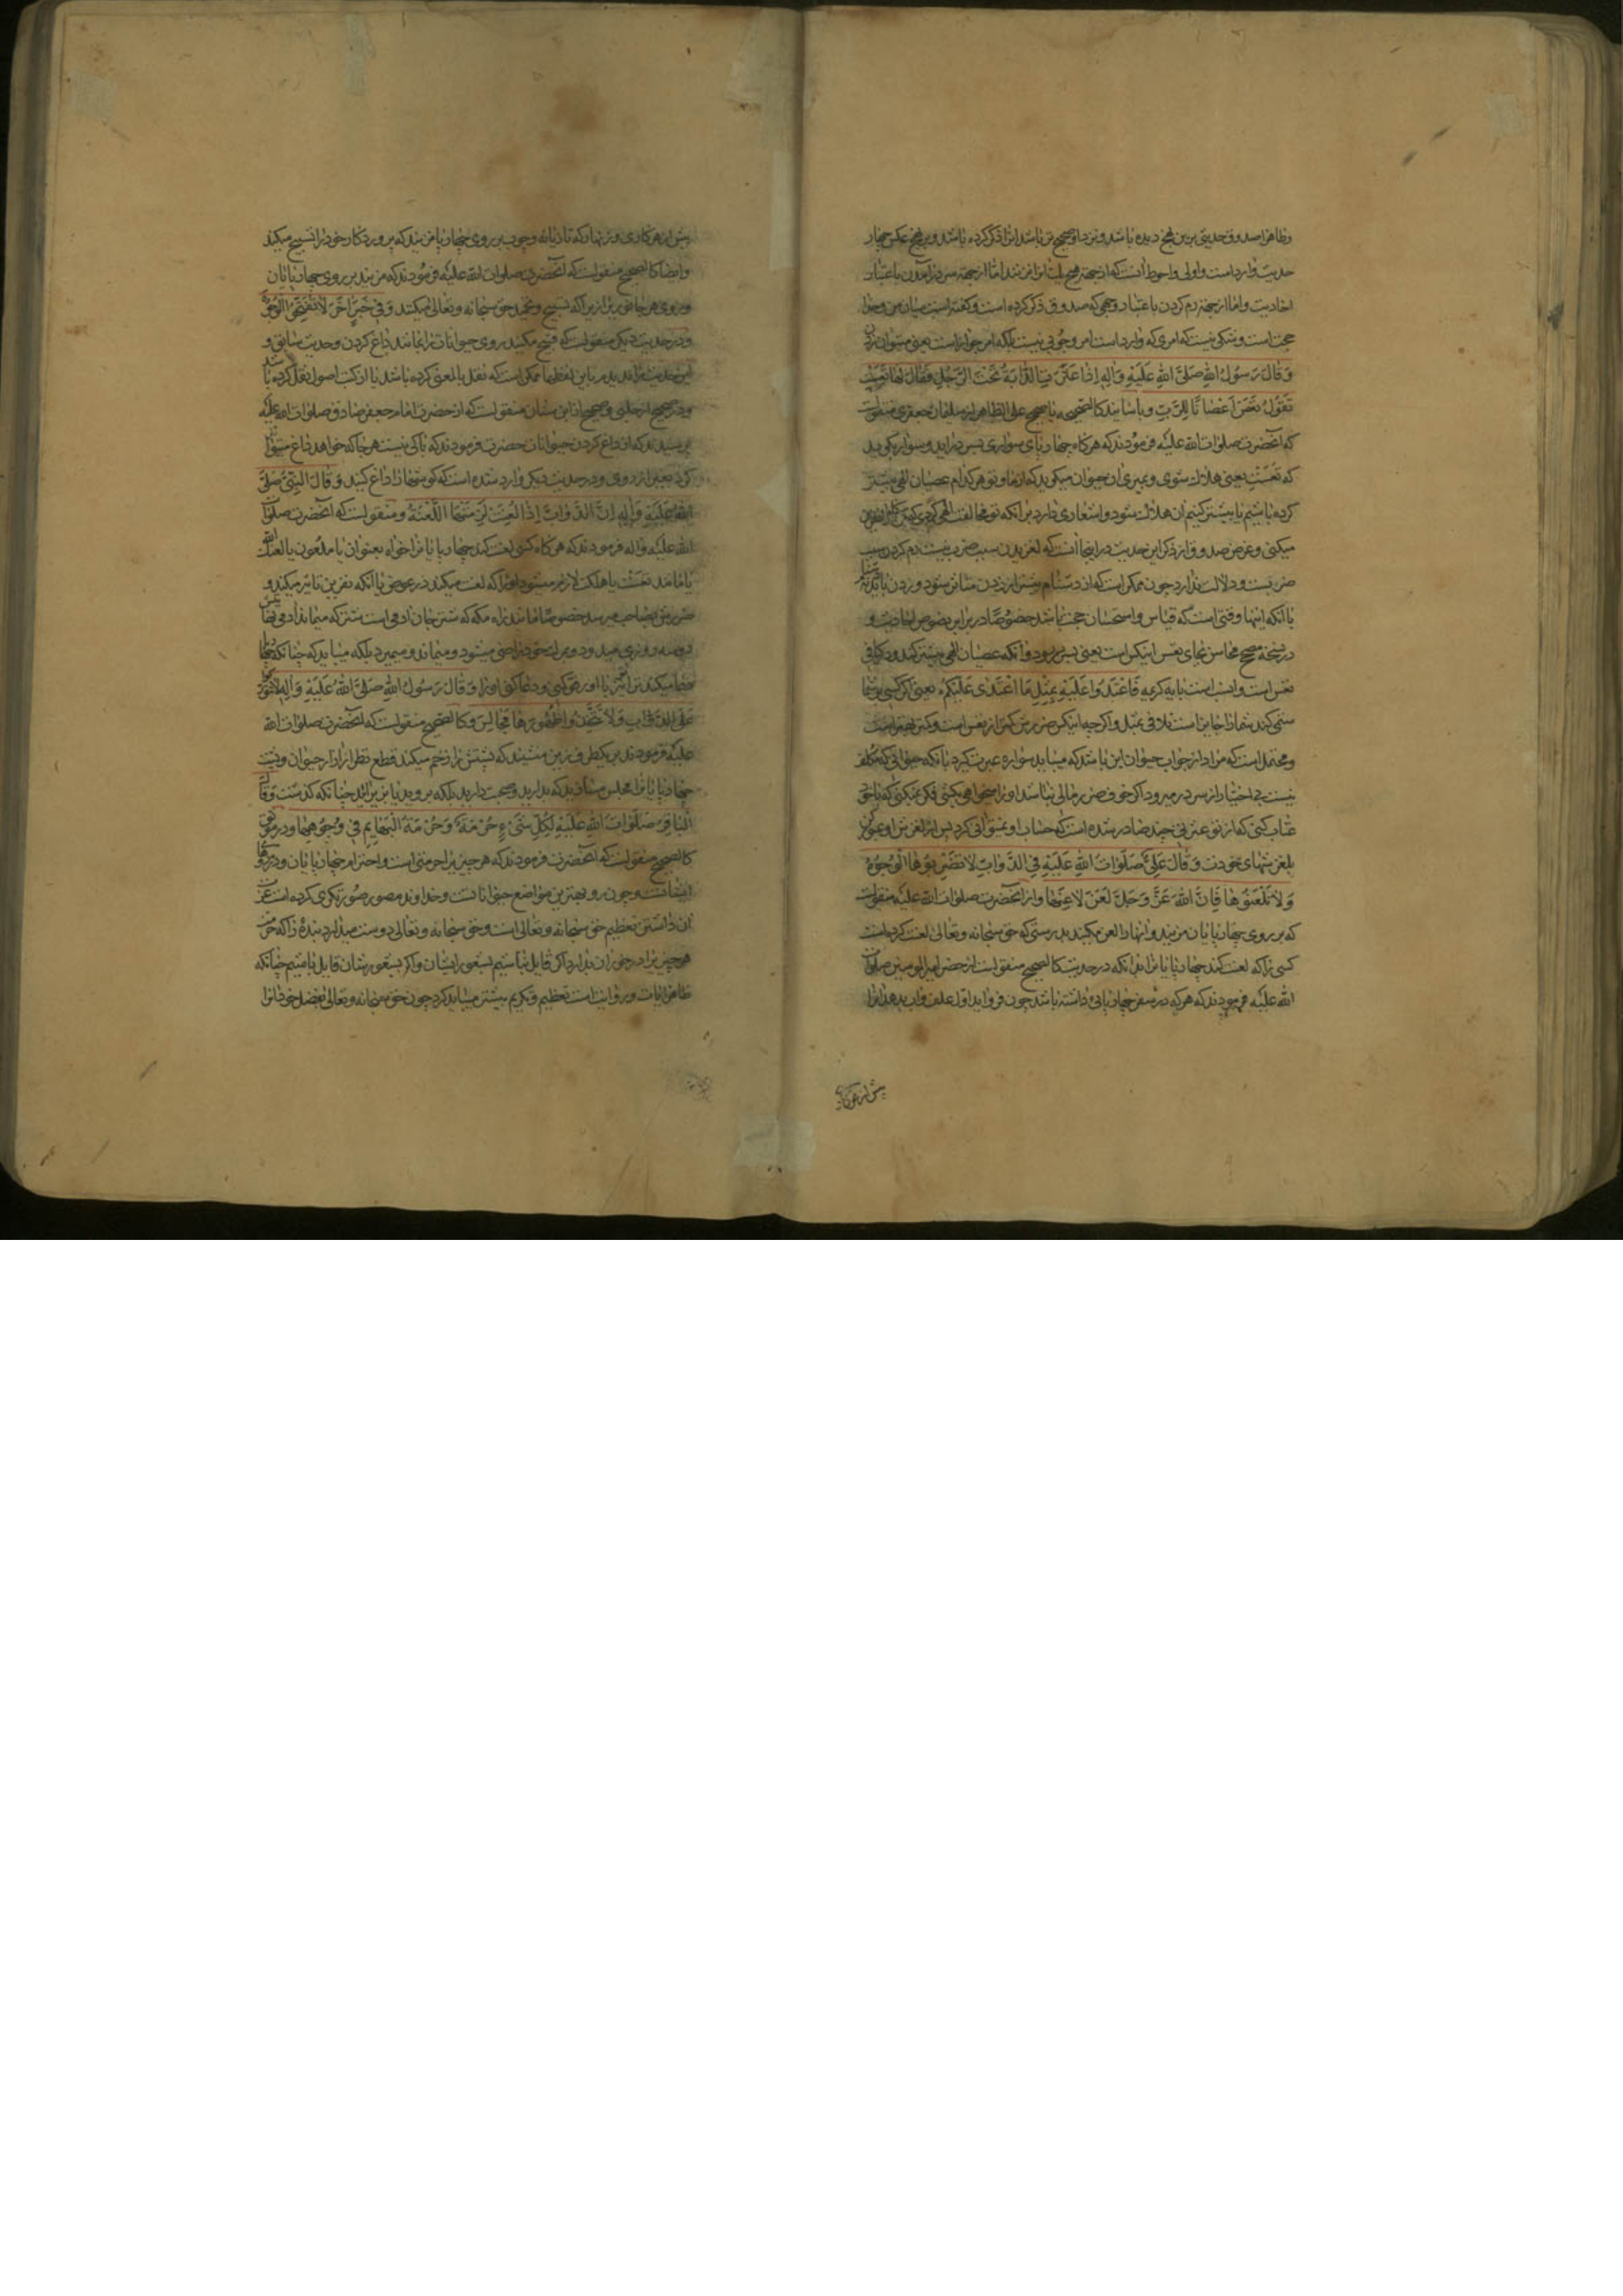 وظاهرا صدوق حدیثی برین نهج دیده باشد ونزد او صحیح تر باشد انرا ذکر کرده باشد وبرین نهج عکس چهار
حدیث وارد است واولی واحوط آنست که از جهة هیچ یک نزنند اما از جهة سر در آمدن باعتبار
احادیث واما از جهة رم کردن باعتبار وجهی که صدوق ذکر کرده است وگفته است میان من وخدا
حجت است وشکی نیست که امری که وارد است امر وجوبی نیست بلکه امر جواز است یعنی میتوان زدن
وَقَالَ رَسُولُ اللهِ صَلَّی اللهِ عَلَیْهِ وَآلِهِ إِذَا عَثَرَتِ الدَّابَةُ تَحْتَ الرَّجُلِ فَقَالَ لَهَا تَعِسْتِ
تَقُولُ تَعِسَ اَعْصَانَا لِلرَّبِّ وباسانید کالصحیحه یا صحیح علی الظاهر از سلیمان جعفری منقولست
که آنحضرت صلوات الله علیه فرمودند که هرگاه چهارپای سواری بسر دراید وسوار بگوید
که تعست یعنی هلاک شوی وبمیری ان حیوان میگوید که از ما وتو هر کدام عصیان الهی بیشتر
کرده باشیم یا بیشتر کنیم ان هلاک شود واشعاری دارد بر انکه تو مخالفت الهی کردی که
میکنی وغرض صدوق از ذکر این حدیث در اینجا آنست که لغزیدن سبب ضرب نیست رم کردن سبب
ضربست ودلالت ندارد چون ممکن است که از دشنام بیشتر از زدن متاثر شود وزدن باید نه دشنام
با آنکه اینها وقتی است که قیاس واستحسان حجت باشد خصوصًا در برابر نصوص احادیث و
در نسخهٔ صحیح محاسن بجای تعس انتکس است یعنی بسر رود وانکه عصیان الهی بیشتر کند ودر کافی
تعس است وانسب است بآیه کریمه فَاعْتَدُوا عَلَیْهِ بِمِثْلِ مَا اعْتَدٰی عَلَیْکُمْ یعنی اگر کسی بر شما
ستمی کند شما را جایز است تلافی بمثل واگرچه انتکس ضررش کمتر از تعس است وکمتر بهتر است
ومحتمل است که مراد از جواب حیوان این باشد که میباید سواره عبرت گیرد با آنکه حیوانی که مکلف
نیست بی اختیار از سر در میرود اگر خوف ضرر مالی نباشد او را میخواهی بکشی فکر نمیکنی که با خود
عتاب کنی که از تو عمری چند خطا صادر شده است که حساب او نمیتوانی کرد پس از لغزش او عبرت گیر
بلغزشهای خودت وَقَالَ عَلِیٌّ صَلَوَاتُ اللهِ عَلَیْهِ فِی الدَّوَابِّ لَا تَضْرِبُوهَا الْوُجُوهَ
وَلَا تَلْعَنُوهَا فَإِنَّ اللهَ عَزَّ وَجَلَّ لَعَنَ لَاعِنَهَا واز آنحضرت صلوات الله علیه منقولست
که بر روی چهارپایان مزنید وانها را لعن مکنید بدرستی که حق سبحانه وتعالی لعنت کرده است
کسی را که لعنت کند چهارپایانرا بدانکه در حدیث کالصحیح منقول است از حضرت امیر المومنین صلوات
الله علیه فرمودند که هر که در سفر چهارپایی داشته باشد چون فرود اید اول علف واب بدهد انرا
پیش از هر کاری
پیش از هر کاری وزنهار که تازیانه وچوب بر روی چهارپا مزنید که پروردکار خود را تسبیح میکند
وایضا کالصحیح منقولست که آنحضرت صلوات الله علیه فرمودند که مزنید بر روی چهارپایان
وروی هر جانوری از برای آنکه تسبیح وتحمید حق سبحانه وتعالی میکنند وَفِی خَبَرٍ اٰخَرَ لَا تُقَبِّحُوا الْوُجُوهَ
ودر حدیث دیگر منقولست که قبیح مکنید روی حیوانات را بمانند داغ کردن وحدیث سابق و
این حدیث را ندیدیم باین لفظها ممکن است که نقل بالمعنی کرده باشد یا از کتب اصول نقل کرده باشد
ودر صحیح از حلبی وصحیح از ابن سنان منقول است که از حضرت امام جعفر صادق صلوات الله علیه
پرسیدند که از داغ کردن حیوانات حضرت فرمودند که باکی نیست هر جا که خواهد داغ میتوان
کرد بغیر از روی ودر حدیث دیگر وارد شده است که گوشها را داغ کنید وَقَالَ النَّبِیُّ صَلَّی
اللهُ عَلَیْهِ وَآلِهِ إِنَّ الدَّوَابَّ إِذَا لُعِنَتْ لَزِمَتْهَا اللَّعْنَةُ ومنقولست که آنحضرت صلوات
الله علیه واله فرمودند که هرگاه کسی لعنت کند چهارپایانرا خواه بعنوان یا ملعون یا لعنک الله
یا مانند تعست یا هلکت لازم میشود او را که لعنت میکند در عوض یا آنکه نفرین تاثیر میکند و
ضررش بصاحب میرسد خصوصًا مانند راه مکه که شتر جان ادمی است شتر که میماند ادمی
دو سه روزی میدود وبمرک خود راضی میشود ومیماند ومیمیرد بلکه میباید که چنانکه
خطا میکند تو انرا عفو کنی ودعا کنی او را وَقَالَ رَسُولُ اللهِ صَلَّی اللهُ عَلَیْهِ وَاٰلِهِ لَا تَتَوَرَّکُوا
عَلَی الدَّوَابِّ وَلَا تَتَّخِذُوا ظُهُورَهَا مَجَالِسَ وکالصحیح منقولست که آنحضرت صلوات الله
علیه فرمودند بر یکطرف زین منشینید که پشتش را زخم میکند قطع نظر از آزار حیوان وپشت
چهارپایانرا مجلس مسازید که بدارید وصحبت دارید بلکه بروید یا بزیر ائید چنانکه گذشت وَقَالَ
الْبَاقِرُ صَلَوَاتُ اللهِ عَلَیْهِ لِکُلِّ شَیْءٍ حُرْمَةٌ وَحُرْمَةُ الْبَهَایِمِ فِی وُجُوهِهَا ودر موثق
کالصحیح منقولست که آنحضرت فرمودند که هر چیزیرا حرمتی است واحترام چهارپایان در روها
ایشانست وچون رو بهترین مواضع حیواناتست وخداوند مصور صورتگری کرده است
آن داشتن تعظیم حق سبحانه وتعالی است وحق سبحانه وتعالی دوست میدارد بنده را که حرمت
هر چیز را در خور آن بدارد اگر قایل نباشیم بشعور ایشان واگر بشعورشان قایل باشیم چنانکه
ظاهر ایات وروایات است تعظیم وتکریم بیشتر میباید کرد چون حق سبحانه وتعالی بفضل خود انرا